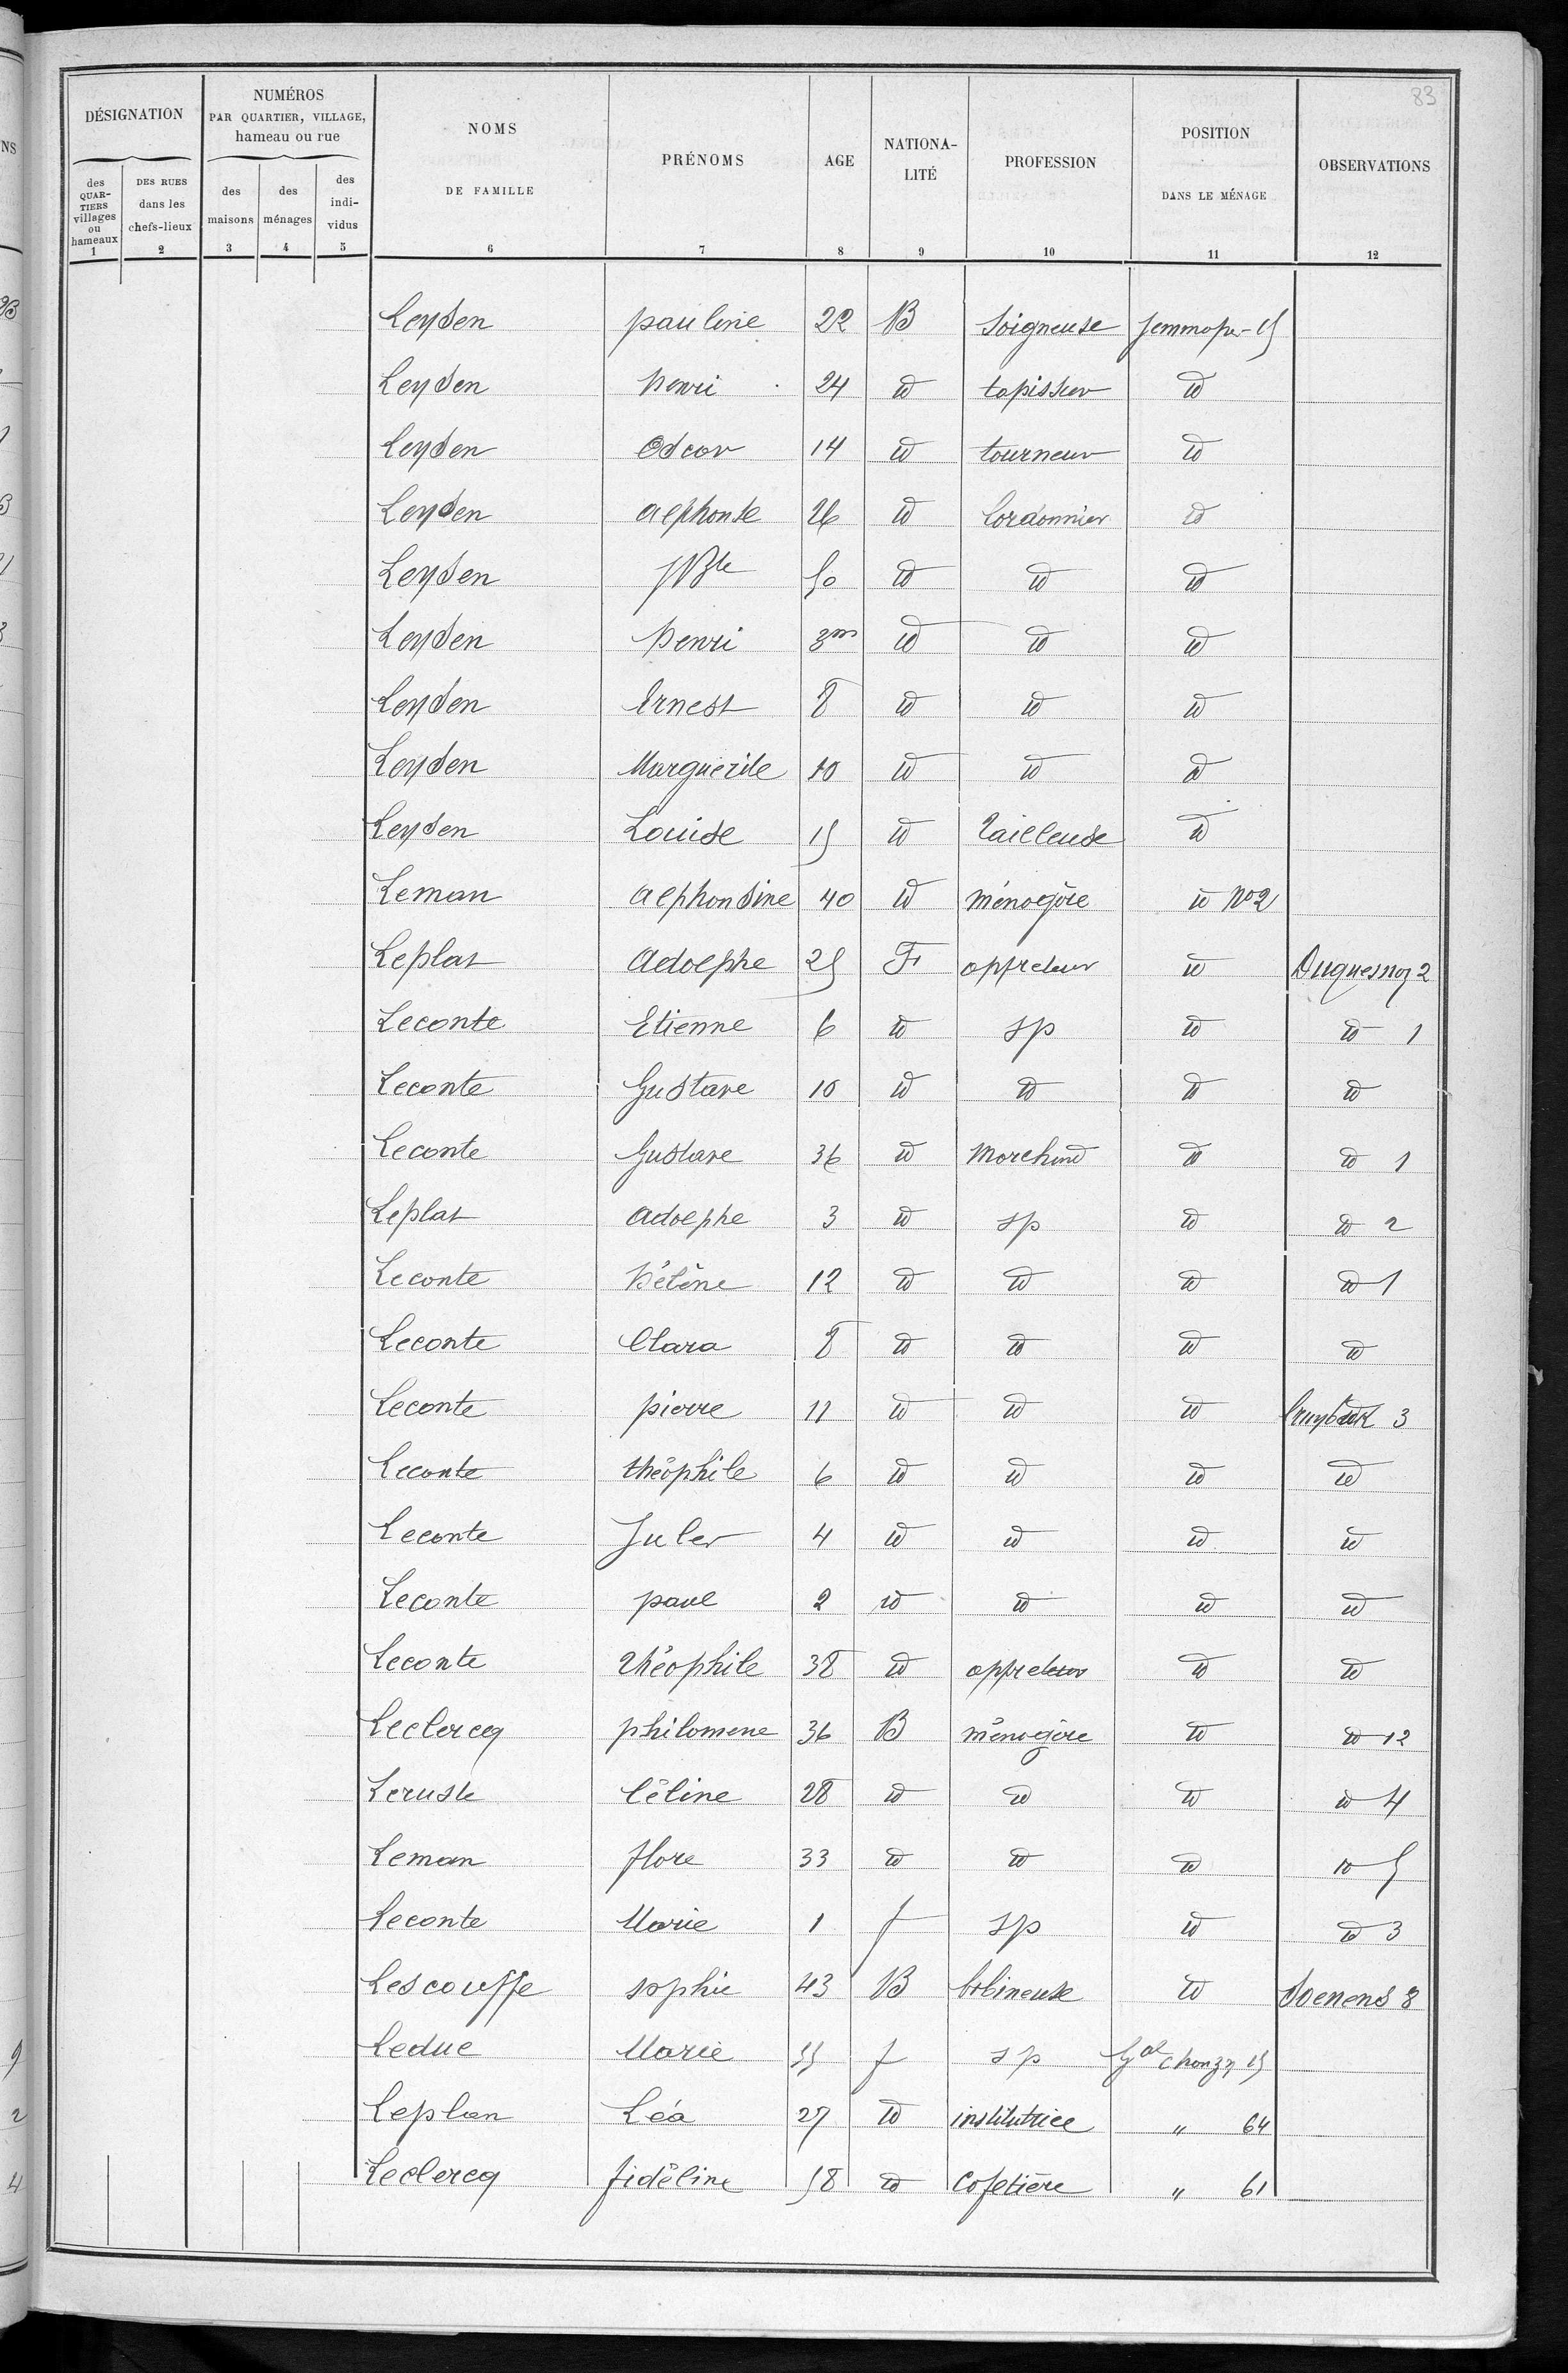 83
DÉSIGNATION
NUMÉROS
PAR QUARTIER, VILLAGE,
hameau ou rue
NOMS
DE FAMILLE
PRÉNOMS
AGE
NATIONA-
LITÉ
PROFESSION
POSITION
DANS LE MÉNAGE
OBSERVATIONS
des
QUAR-
TIERS
villages
ou
hameaux
DES RUES
dans les
chefs-lieux
des
maisons
des
ménages
des
indi-
vidus
1 2 3 4 5 6 7 8 9 10 11 12
Leysen pauline 22 B Soigneuse Jemmape - 15
Leysen henri 24 id tapissier id
Leysen Oscar 14 id tourneur id
Leysen alphonse 26 id Cordonnier id
Leysen JBte 50 id id id
Leysen henri 3m id id id
Leysen Ernest 8 id id id
Leysen Marguerite 10 id id id
Leysen Louise 15 id tailleuse id
Leman alphonsine 40 id ménagère id No 2
Leplat Adolphe 25 F appreteur id Duquesnoy 2
Leconte Etienne 6 id sp id id 1
Leconte Gustave 10 id id id id
Leconte Gustave 36 id Marchand id id 1
Leplat adolphe 3 id sp id id 2
Leconte hélène 12 id id id id 1
Leconte Clara 8 id id id id
Leconte pierre 11 id id id 3
Leconte théophile 6 id id id id
Leconte Jules 4 id id id id
Leconte paul 2 id id id id
Leconte théophile 38 id appreteur id id
Leclercq philomene 36 B ménagère id id 12
Leruste Céline 28 id id id id 4
Leman flore 33 id id id id 5
Leconte Marie 1 f sp id id 3
Lescouffe sophie 43 B bobineuse id Soenens 8
Leduc Marie 55 f sp Gal Chanzy 15
Leplan Léa 27 id institutrice " 64
Leclercq fidéline 58 id Cafetière " 61